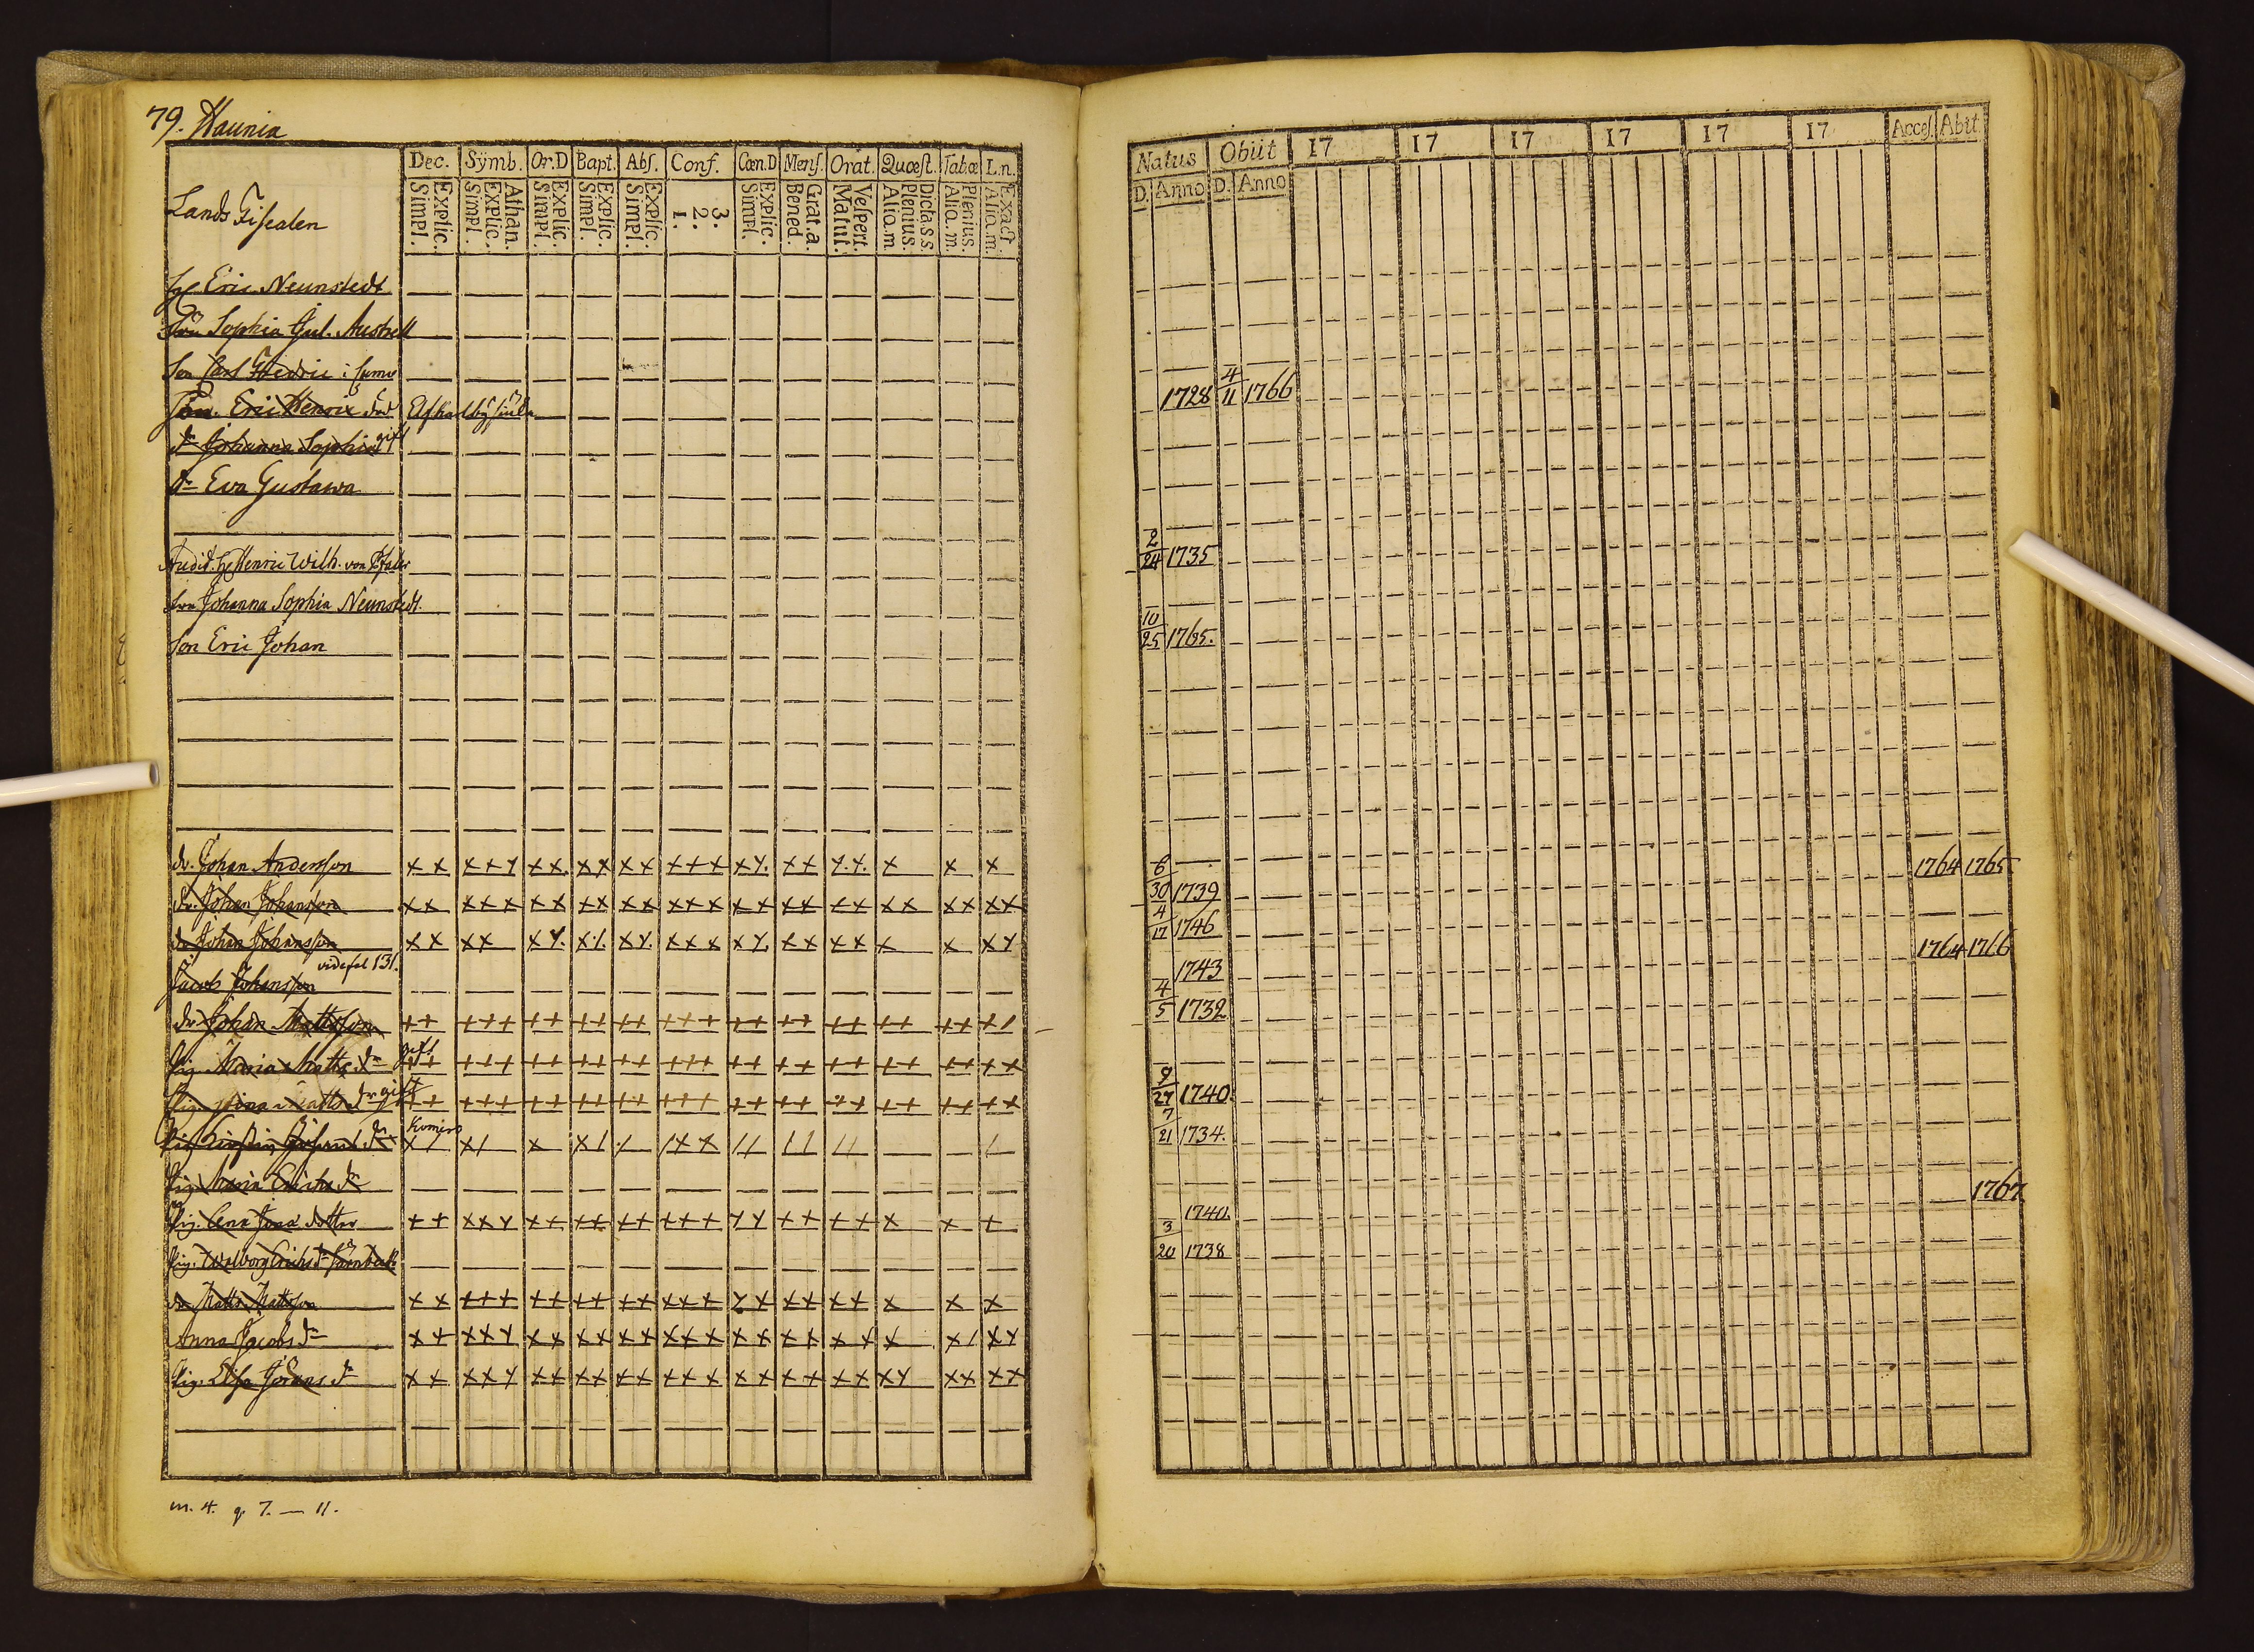 79. Haunia
Dec. Sÿmb. Or.D Bapt. Abſ. Conf. Cœn.D Menſ. Orat. Quæſt. Tab.œ L.n.
Explic. Simpl. Athan. Explic. Simpl. Explic. Simpl. Explic. Simpl. Explic. Simpl. 3. 2. 1. Explic. Simpl. Grat.a. Bened. Veſpert. Matut. Dicta.s.s. Plenius. Aliq.m Plenius. Aliq.m. Exact Aliq.m.
Lands Fiscalen
Eric Neunstedt
Sophia Jul. Austrell
Son Carl Fredric
Eric Henric död
Johanna Sophia gift
dr Eva Gustawa
Audit. Henric Wilh. von Pfaler
Johanna Sophia Neunstedt.
Son Eric Johan
dr. Johan Andersson ×× ××× ×× ×× ×× ××× ×× ×× ×× × × ×
dr. Johan Johansson ×× ××× ×× ×× ×× ××× ×× ×× ×× ×× ×× ××
dr Johan Johansson ×× ×× ×× ×× ×× ××× ×× ×× ×× × × ××
vide fol 131.
Jacob Johansson
dr. Johan Mattsson ++ +++ ++ ++ ++ +++ ++ ++ ++ ++ ++ ×/
Pig. Maria Matts dr gift ++ +++ ++ ++ ++ +++ ++ ++ ++ ++ ++ ××
Pig. Matts dr gift ++ +++ ++ ++ ++ +++ ++ ++ ++ ++ ++ +×
Pig. dr ×/ ×/ × ×/ / /×× // // // /
Pig. Maria Erichs dr
Pig. Lena dotter ++ ××× ++ ++ ++ +++ ×× ++ ++ × × +
Pig. Walborg Erichs dr
dr Matts Mattsson ×× +++ ++ ++ ++ ××× ×× ×× ×× × × ×
Anna Jacobs dr ×× ××× ×× ×× ×× ××× ×× ×× ×× × ×/ ××
Pig. Lisa Jörans dr ×× ××× ×× ×× ×× ××× ×× ×× ×× ×× ×× ××
m. 4. q. 7. — 11.
Natus Obiit 17 17 17 17 17 17 Acceſ. Abit
D. Anno D. Anno
1728 4/11 1766
2/24 1735
10/25 1765.
1764 1765
6/30 1739
4/17 1746
1764 1766
1743
4/5 1732
9/27 1740
7/21 1734.
1767
1740
3/20 1738